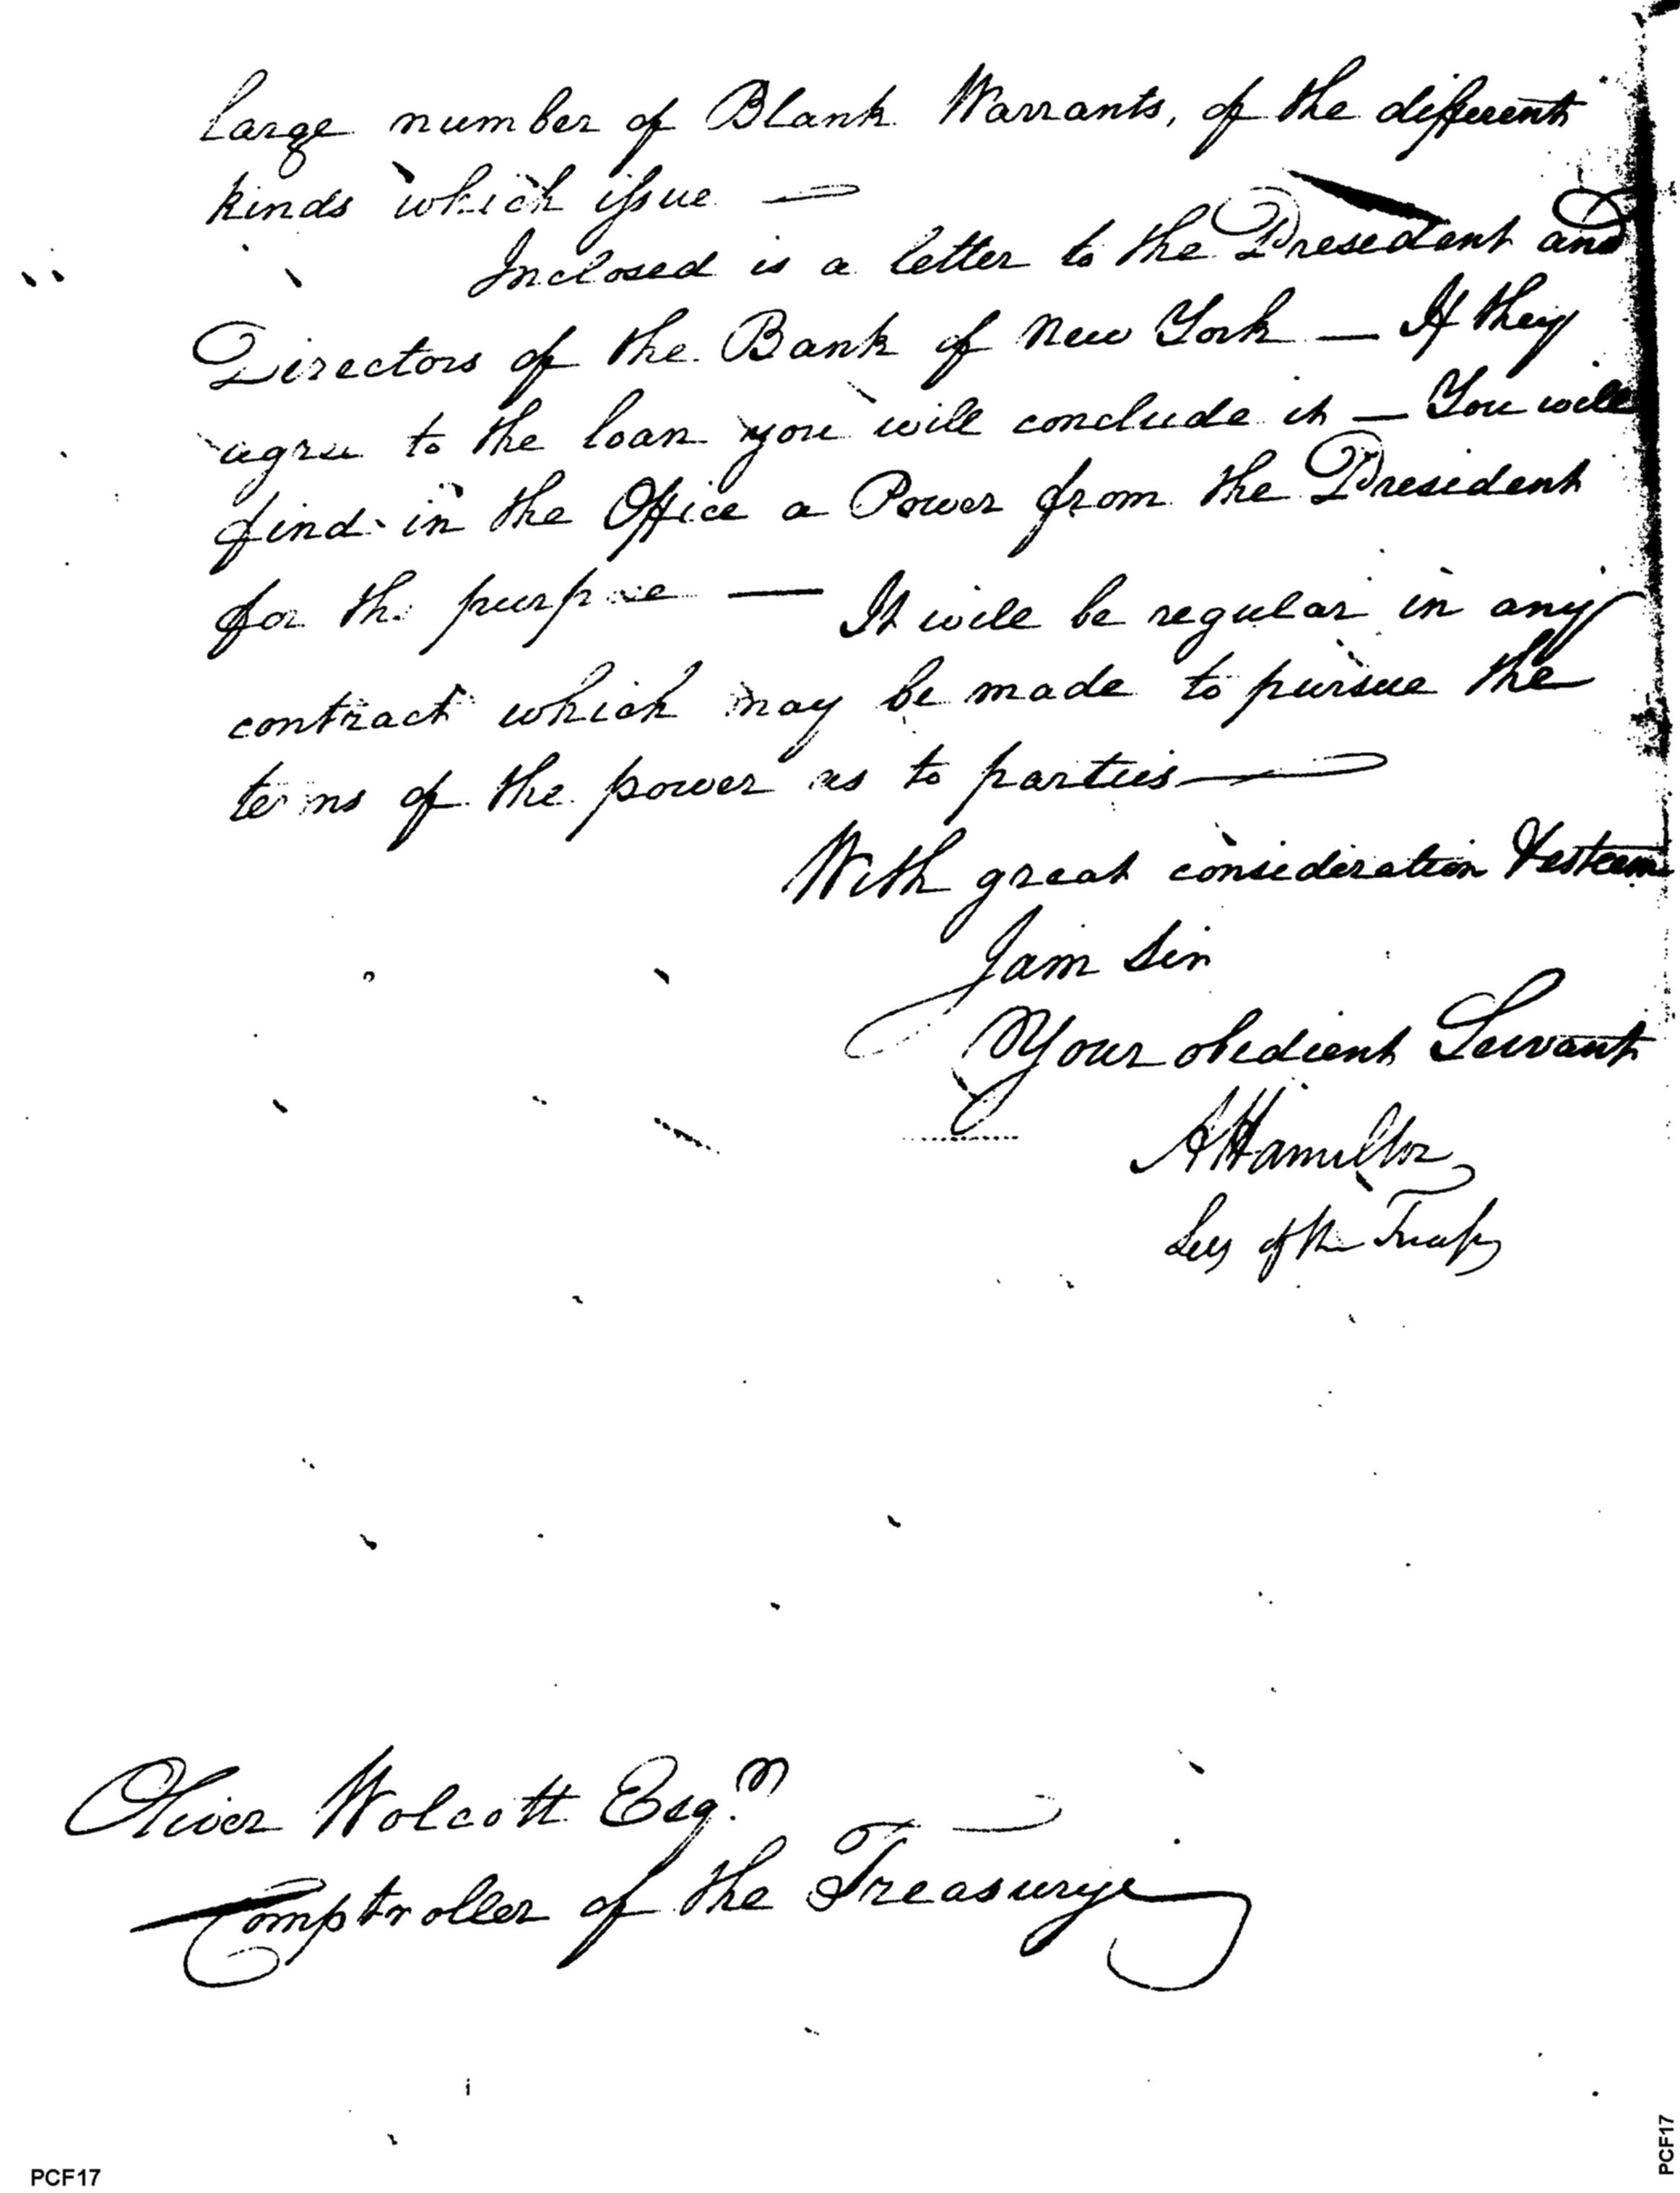 large number of Blank Warrants, of the different
kinds which issue —
Inclosed is a letter to the President and
Directors of the Bank of New York — If they
agree to the loan you will conclude it — You will
find in the Office a Power from the President
for the purpose — It will be regular in any
contract which may be made to pursue the
terms of the power as to parties —
With great consideration & esteem
I am Sir
Your obedient Servant
A Hamilton
Secy of the Treasy
Oliver Wolcott Esqr.
Comptroller of the Treasury
PCF17
PCF17